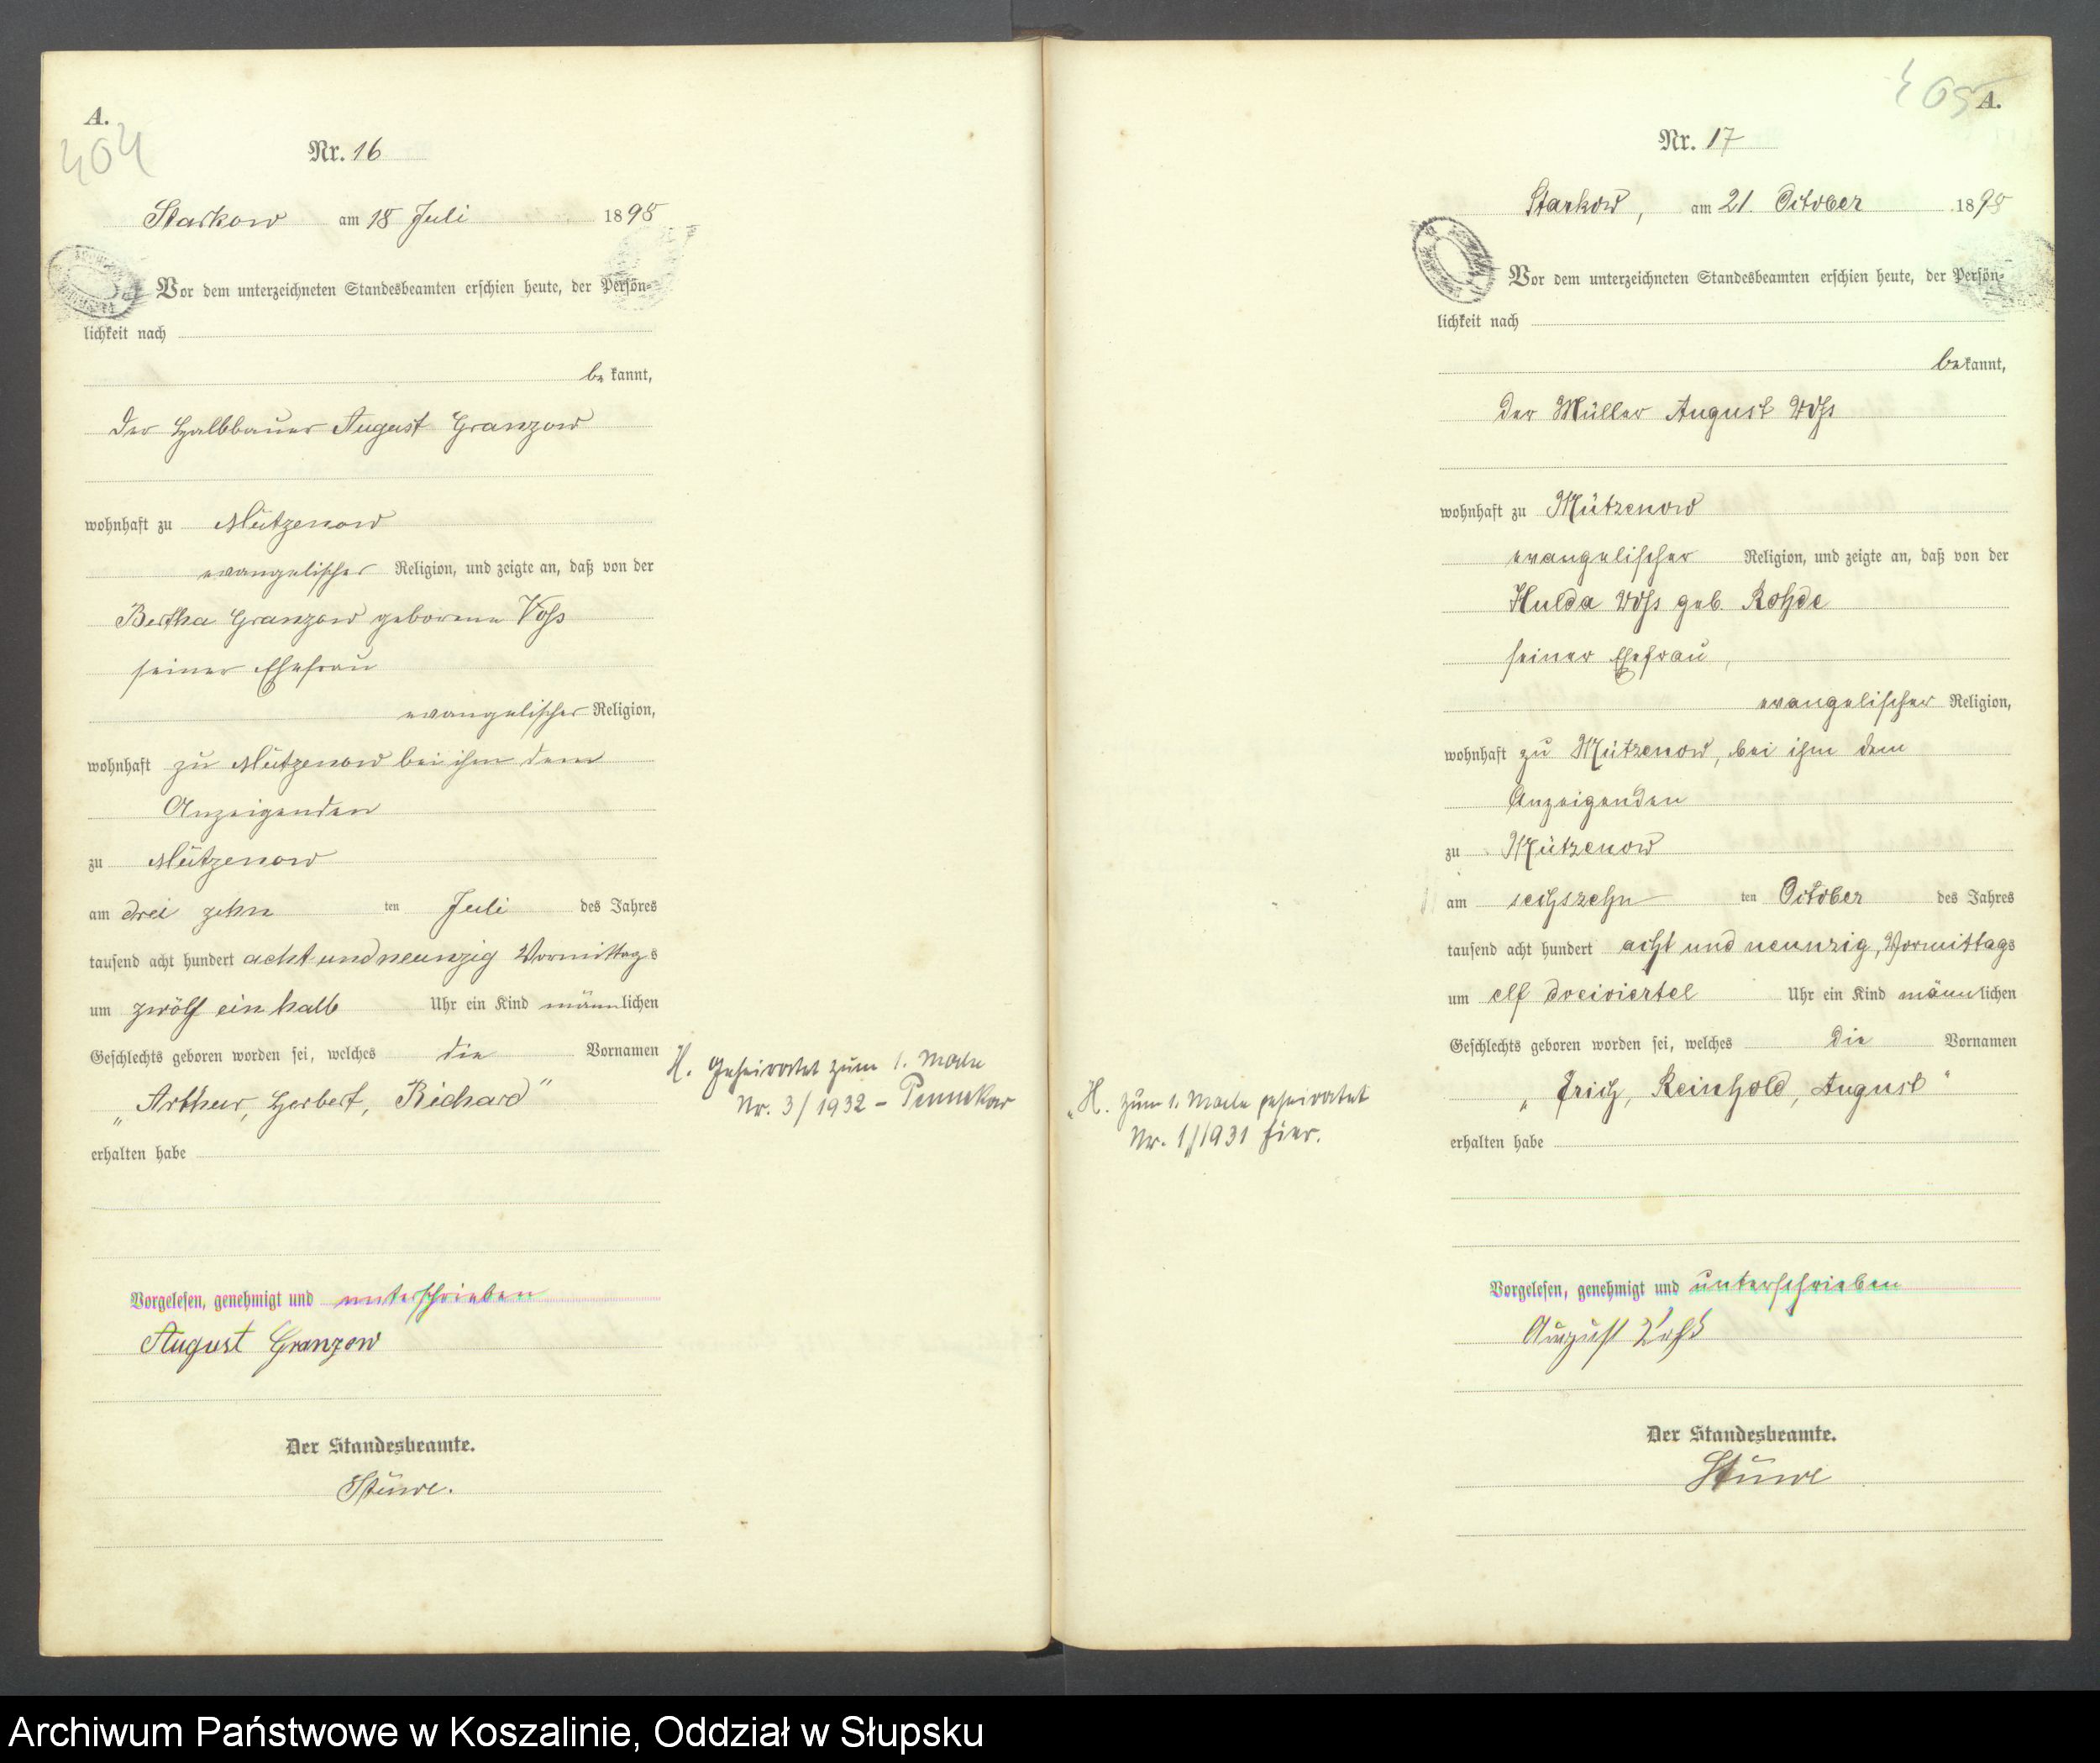 A.
404
Nr. 16
Starkow am 18 Juli 1898
Vor dem unterzeichneten Standesbeamten erschien heute, der Persön-
lichkeit nach
be kannt,
der Halbbauer August Granzow
wohnhaft zu Mützenow
evangelischer Religion, und zeigte an, daß von der
Bertha Granzow geborene Voß
seiner Ehefrau
evangelischer Religion,
wohnhaft zu Mützenow bei ihm dem
Anzeigenden
zu Mützenow
am drei zehn ten Juli des Jahres
tausend acht hundert acht und neunzig Vormittags
um zwölf ein halb Uhr ein Kind männlichen
Geschlechts geboren worden sei, welches die Vornamen
„Arthur, Herbert, Richard"
erhalten habe
Vorgelesen, genehmigt und unterschrieben
August Granzow
Der Standesbeamte.
Stüwe.
H. Geheiratet zum 1. Male
Nr. 3/1932 –
405
A.
Nr. 17
Starkow, am 21. October 1898
Vor dem unterzeichneten Standesbeamten erschien heute, der Persön-
lichkeit nach
bekannt,
der Müller August Voß
wohnhaft zu Mützenow
evangelischer Religion, und zeigte an, daß von der
Hulda Voß geb. Rohde
seiner Ehefrau,
evangelischer Religion,
wohnhaft zu Mützenow, bei ihm dem
Anzeigenden
zu Mützenow
am sechszehn ten October des Jahres
tausend acht hundert acht und neunzig, Vormittags
um elf dreiviertel Uhr ein Kind männlichen
Geschlechts geboren worden sei, welches die Vornamen
„Erich, Reinhold, August"
erhalten habe
Vorgelesen, genehmigt und unterschrieben
August Voß
Der Standesbeamte.
Stüwe
H. zum 1. Male geheiratet
Nr. 1/1931 hier.
Archiwum Państwowe w Koszalinie, Oddział w Słupsku